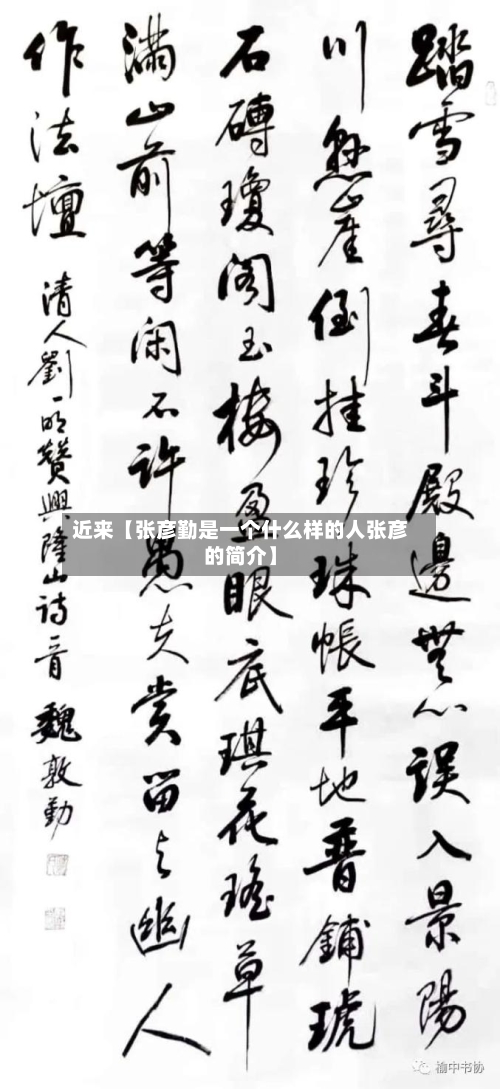 踏雪尋春斗殿邊無心误入景陽
川懸崖倒挂珍珠帳平地普鋪琥
石磚瓊阁玉楼盈眼底琪花瑤草
滿山前等闲不许愚夫赏留与幽人
作法壇
清人劉一明贊興隆山詩一首 魏敦勤
近来【张彦勤是一个什么样的人张彦
的简介】
榆中书协